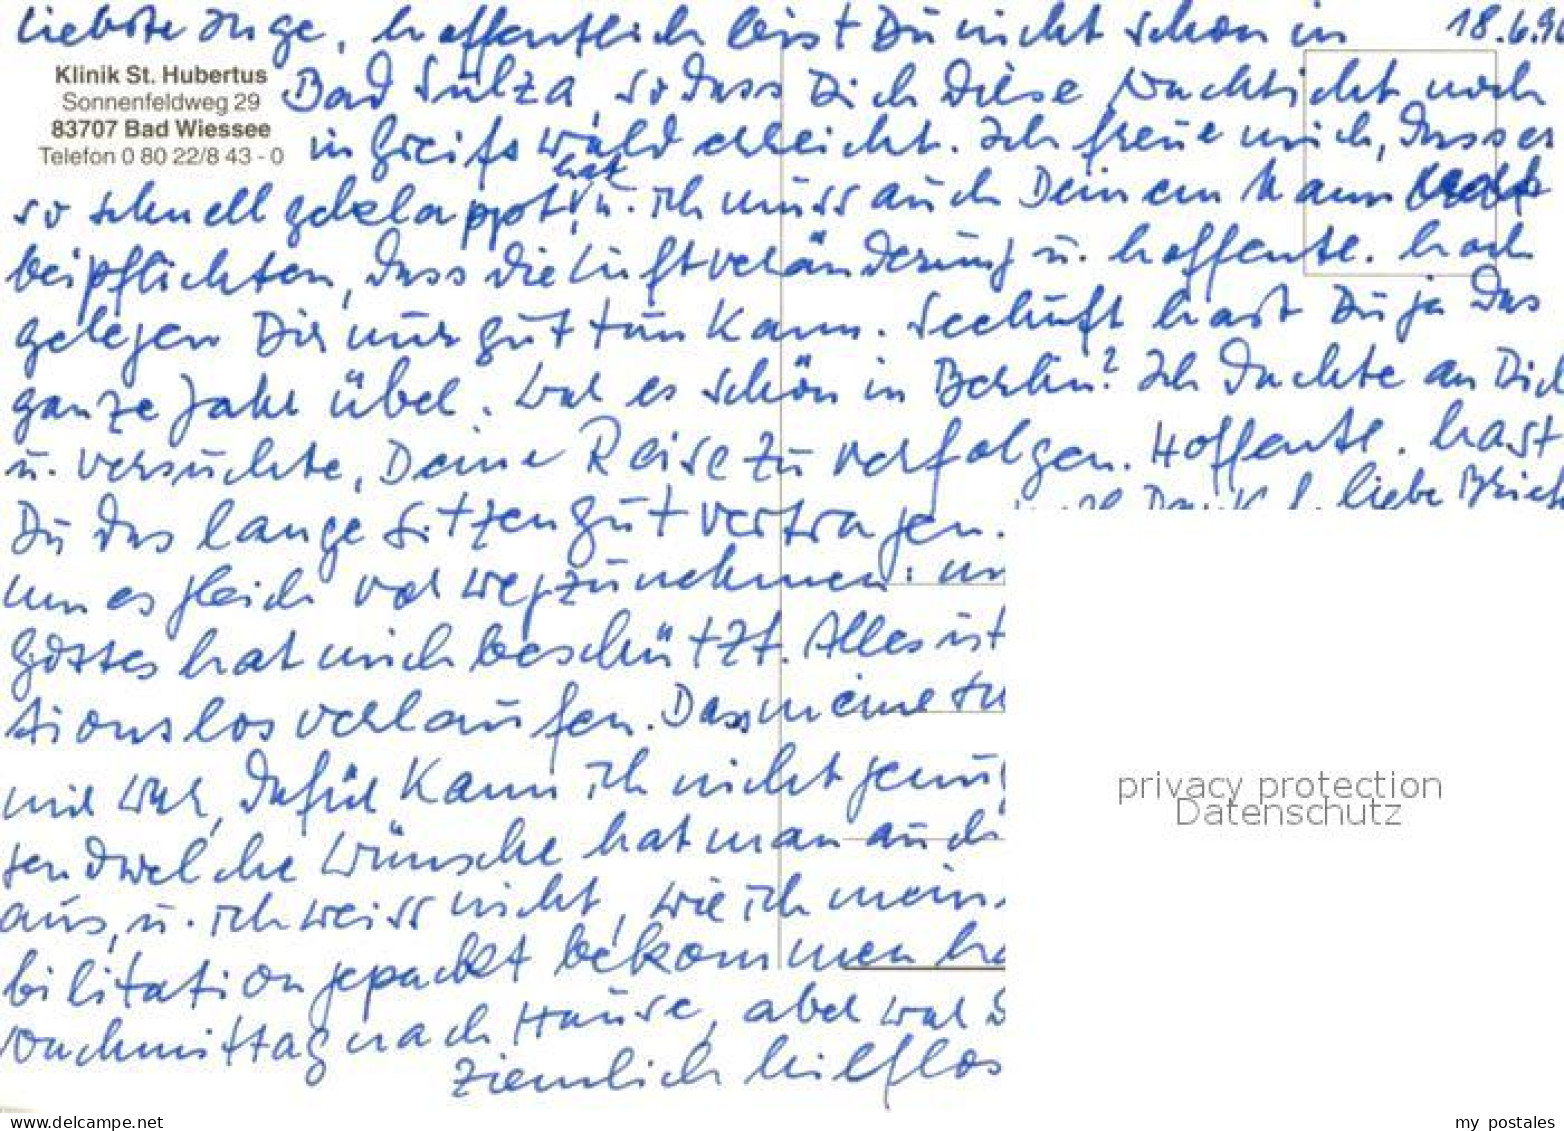 liebste Inge, hoffentlich bist Du nicht schon in 18.6.96
Klinik St. Hubertus
Sonnenfeldweg 29
83707 Bad Wiessee
Telefon 0 80 22/8 43 - 0
Bad Sulza, so dass Dich diese Nachricht noch
in Greifswald erreicht. Ich freue mich, dass es
so schnell geklappt hat, u. ich muss auch Deinem Mann
beipflichten, dass die Luftveränderung u. hoffentl. hoch
gelegen Dir nur gut tun kann. Seeluft hast Du ja das
ganze Jahr über. War es schön in Berlin? Ich dachte an Dich
u. versuchte, Deine Reise zu verfolgen. Hoffentl. hast
Du das lange Sitzen gut vertragen. Dank f. liebe
um es gleich vorwegzunehmen:
Gottes hat mich beschützt. Alles ist
tionslos verlaufen. Dass meine
mir war, dafür kann ich nicht
tendwelche Wünsche hat man auch
aus, u. ich weiss nicht, wie ich mein
bilitation gepackt bekommen
nachmittag nach Hause, aber war
ziemlich hilflos
privacy protection
Datenschutz
www.delcampe.net
my_postales